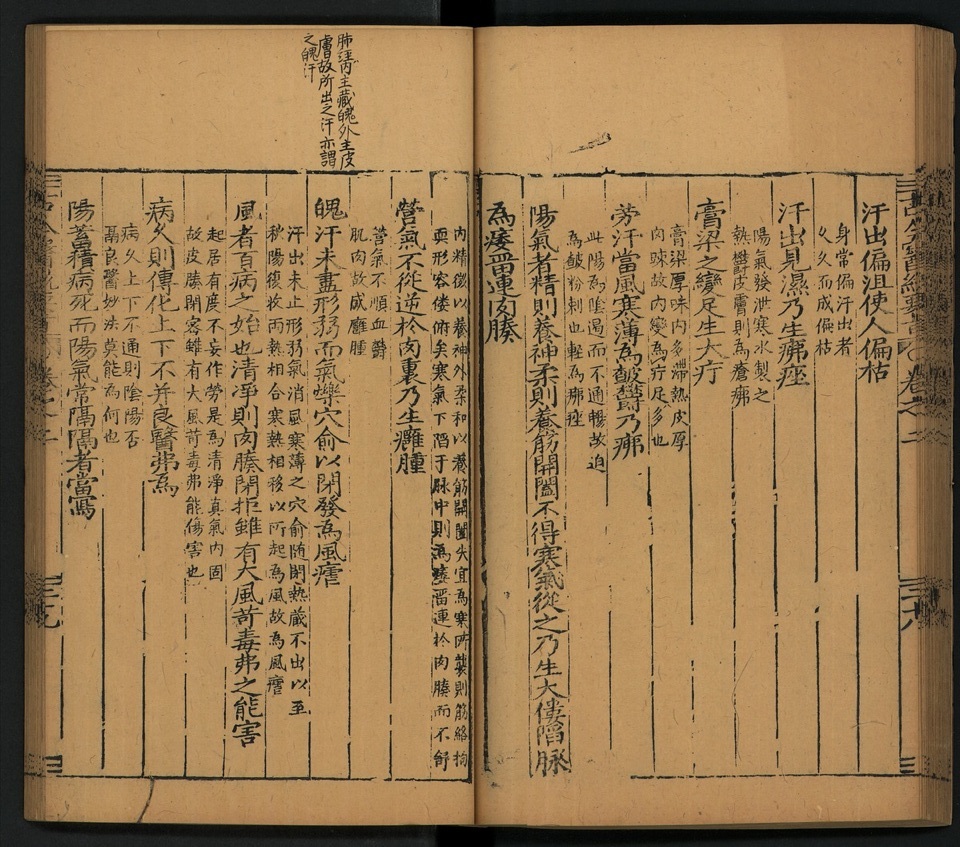 汗出偏沮使人偏枯
身常偏汗出者
久久而成偏枯
汗出見濕乃生痤疿
陽氣發泄寒水製之
熱鬱皮膚則為瘡疿
膏梁之變足生大疔
膏梁厚味内多滯熱皮厚
肉踈故内變為疔足多也
勞汗當風寒薄為皶鬱乃疿
此陽為陰遏而不通暢故迫
為皶粉刺也輕為疿痤
陽氣者精則養神柔則養筋開闔不得寒氣從之乃生大僂陷脉
為瘻畱連肉腠
内精微以養神外柔和以養筋開闔失宜為寒所襲則筋絡拘
耎形容僂俯矣寒氣下陷于脉中則為瘻畱連於肉腠而不舒
營氣不從逆於肉裏乃生癰腫
營氣不順血鬱
肌肉故成癰腫
肺註内主藏魄外主皮
膚故所出之汗亦謂
之魄汗
魄汗未盡形弱而氣爍穴俞以閉發為風瘧
汗出未止形弱氣消風寒薄之穴俞随閉熱藏不出以至
秋陽復收丙熱相合寒熱相移以所起為風故為風瘧
風者百病之始也清凈則肉腠閉拒雖有大風苛毒弗之能害
起居有度不妄作勞是為清凈真氣内固
故皮腠閉密雖有大風苛毒弗能傷害也
病久則傳化上下不并良醫弗為
病久上下不通則陰陽否
鬲良醫妙法莫能為何也
陽蓄積病死而陽氣常隔隔者當寫